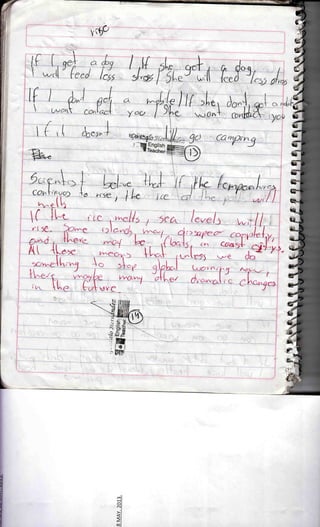 rise
If I get a dog / If she get a dog,
I will feed less stress / She will feed less stress
If I don't get a mobile / If she don't get a mobile
I won't contact you / She won't contact you
If it doesn't I'll go camping
English
Teacher
13
Scientist belive that if the temperatures
continues to rise, the ice at the will
melts
If the ice melts, sea levels will
rise. Some islands may disapear completly,
and there may be floats, in coast citys.
All these means that unless we do
something to stop global warming now,
there maybe many other dramatic changes
in the future
English
Teacher
14
8 MAY. 2013